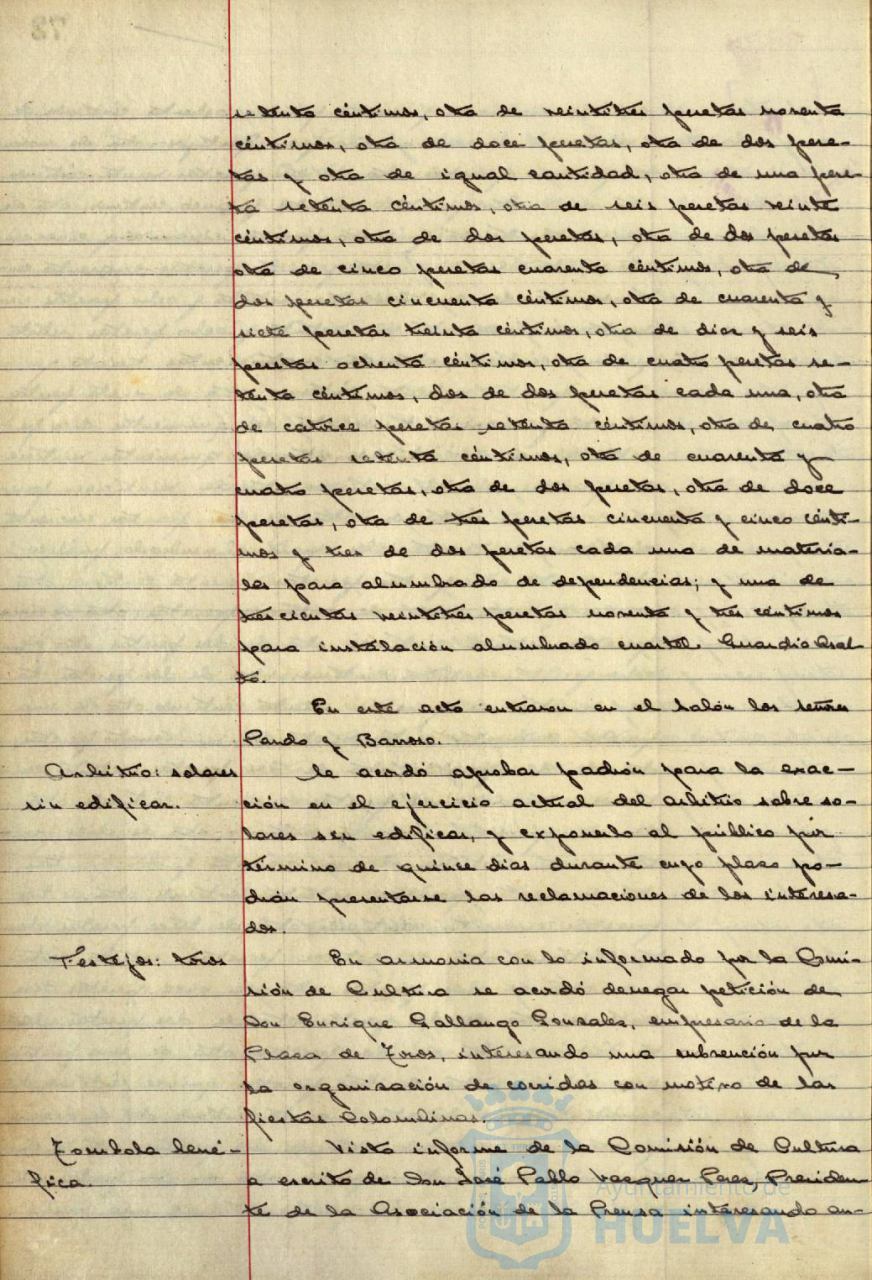 setenta céntimos, otra de veintitres pesetas noventa
céntimos, otra de doce pesetas, otra de dos pese-
tas y otra de igual cantidad, otra de una pese-
ta setenta céntimos, otra de seis pesetas veinte
céntimos, otra de dos pesetas, otra de dos pesetas
otra de cinco pesetas cuarenta céntimos, otra de
dos pesetas cincuenta céntimos, otra de cuarenta y
siete pesetas treinta céntimos, otra de diez y seis
pesetas ochenta céntimos, otra de cuatro pesetas se-
tenta céntimos, dos de dos pesetas cada una, otra
de catorce pesetas setenta céntimos, otra de cuatro
pesetas setenta céntimos, otra de cuarenta y
cuatro pesetas, otra de dos pesetas, otra de doce
pesetas, otra de tres pesetas cincuenta y cinco cénti-
mos y tres de dos pesetas cada una de materia-
les para alumbrado de dependencias; y una de
trescientas veintitres pesetas noventa y tres céntimos
para instalación alumbrado cuartel Guardia Asal-
to.
En este acto entraron en el salón los señores
Pando y Barroso.
Arbitrio: solares
sin edificar.
Se acordó aprobar padrón para la exac-
ción en el ejercicio actual del arbitrio sobre so-
lares sin edificar, y exponerlo al público por
término de quince dias durante cuyo plazo po-
drán presentarse las reclamaciones de los interesa-
dos.
Festejos: toros
En armonia con lo informado por la Comi-
sión de Cultura se acordó denegar petición de
Don Enrique Gallango Gonzalez, empresario de la
Plaza de Toros, interesando una subvención por
la organización de corridas con motivo de las
fiestas Colombinas.
Tombola bené-
fica.
Visto informe de la Comisión de Cultura
a escrito de Don José Pablo Vazquez Perez, Presiden-
te de la Asociación de la Prensa interesando au-
Ayuntamiento de
HUELVA